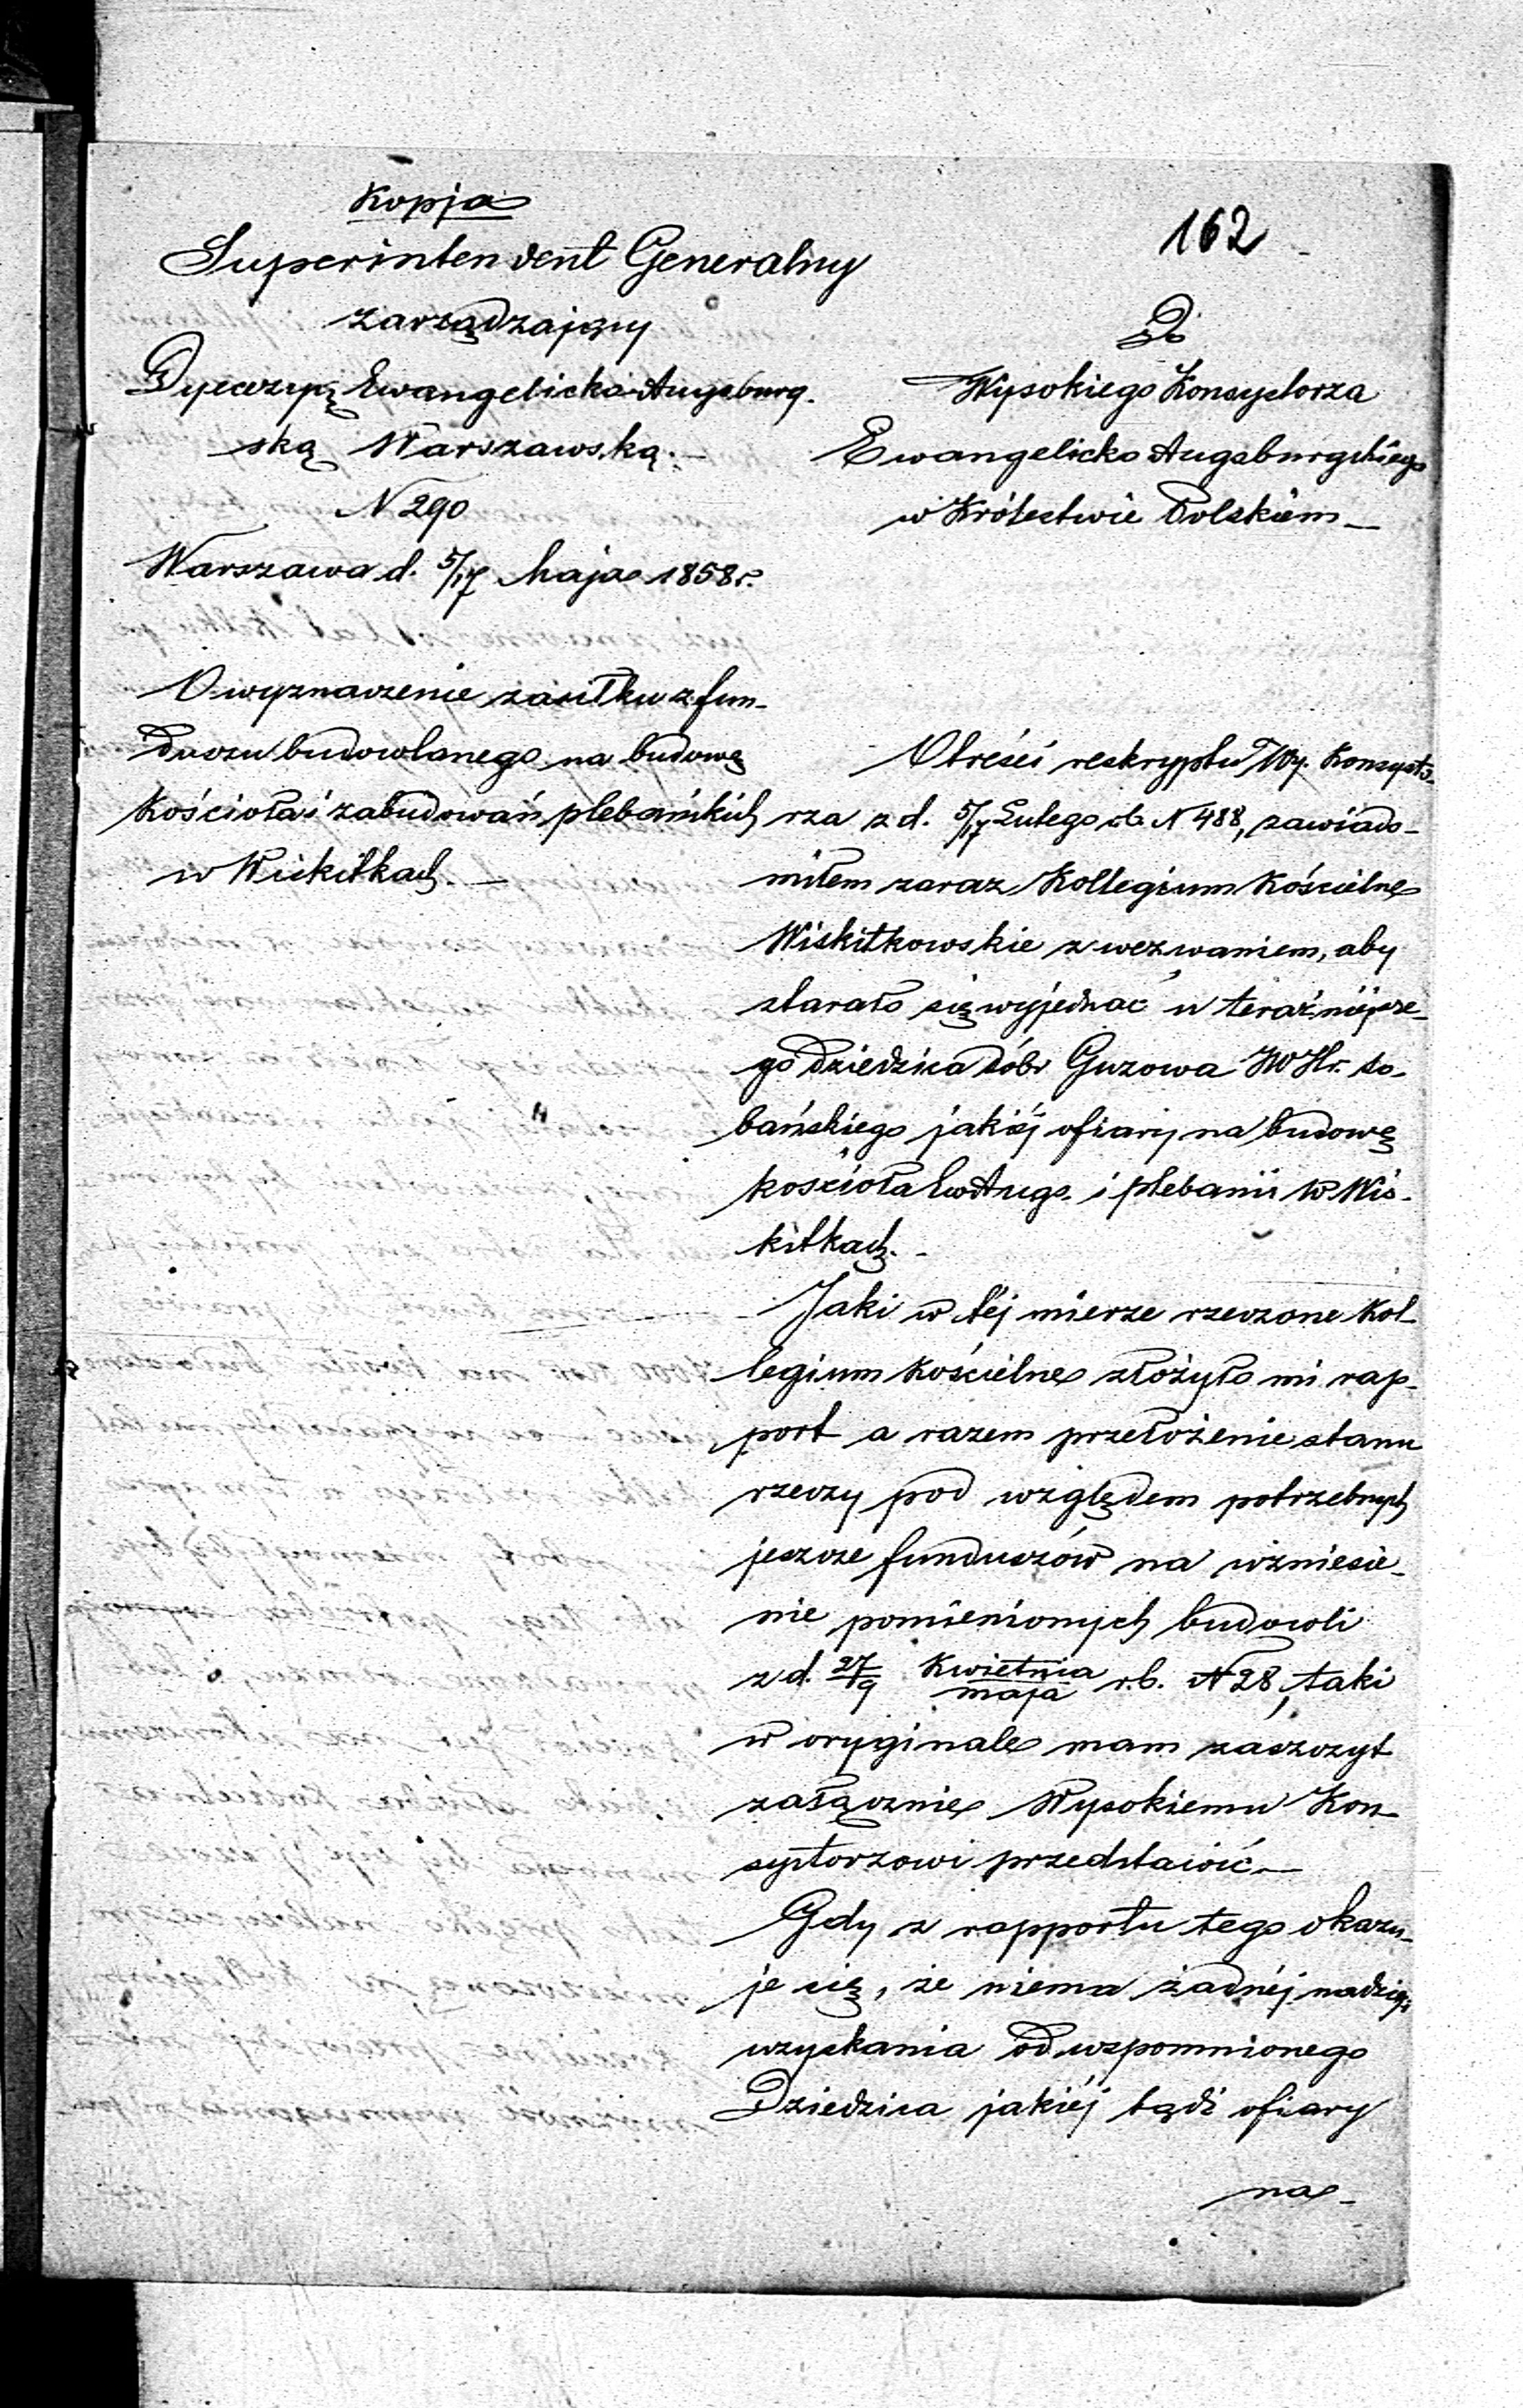 Kopja
162
Superintendent Generalny
zarządzający
Dyecezyą Ewangelicko-Augsburg.
ską Warszawską.-
N 290
Warszawa d. 5/17 Maja 1858 r.
Do
Wysokiego Konsystorza
Ewangelicko Augsburgskiego
w Królestwie Polskiem_
O wyznaczenie zasiłku z fun-
duszu budowlanego na budowę
Kościoła i zabudowań plebańskich
w Wiskitkach._
O treści reskryptu Wy. Konsysto-
rza z d. 5/17 Lutego rb. N 488, zawiado-
miłem zaraz Kollegium Kościelne
Wiskitkowskie z wezwaniem, aby
starało się wyjednać u teraźniejsze-
go dziedzica dóbr Guzowa JW Hr. So-
bańskiego jakiéj ofiary na budowę
kościoła Ew Augs. i plebanii w Wis-
kitkach.-
Jaki w téj mierze rzeczone Kol-
legium Kościelne złożyło mi rap-
port a razem przełożenie stanu
rzeczy pod względem potrzebnych
jeszcze funduszów na wzniesie-
nie pomienionych budowli
z d. 27/9 Kwietnia/maja r.b. N 28, taki
w oryginale mam zaszczyt
załącznie Wysokiemu Kon-
systorzowi przedstawić._
Gdy z rapportu tego okazu-
je się, że niema żadnéj nadziei
uzyskania od wspomnionego
Dziedzica jakiéj bądź ofiary
na_